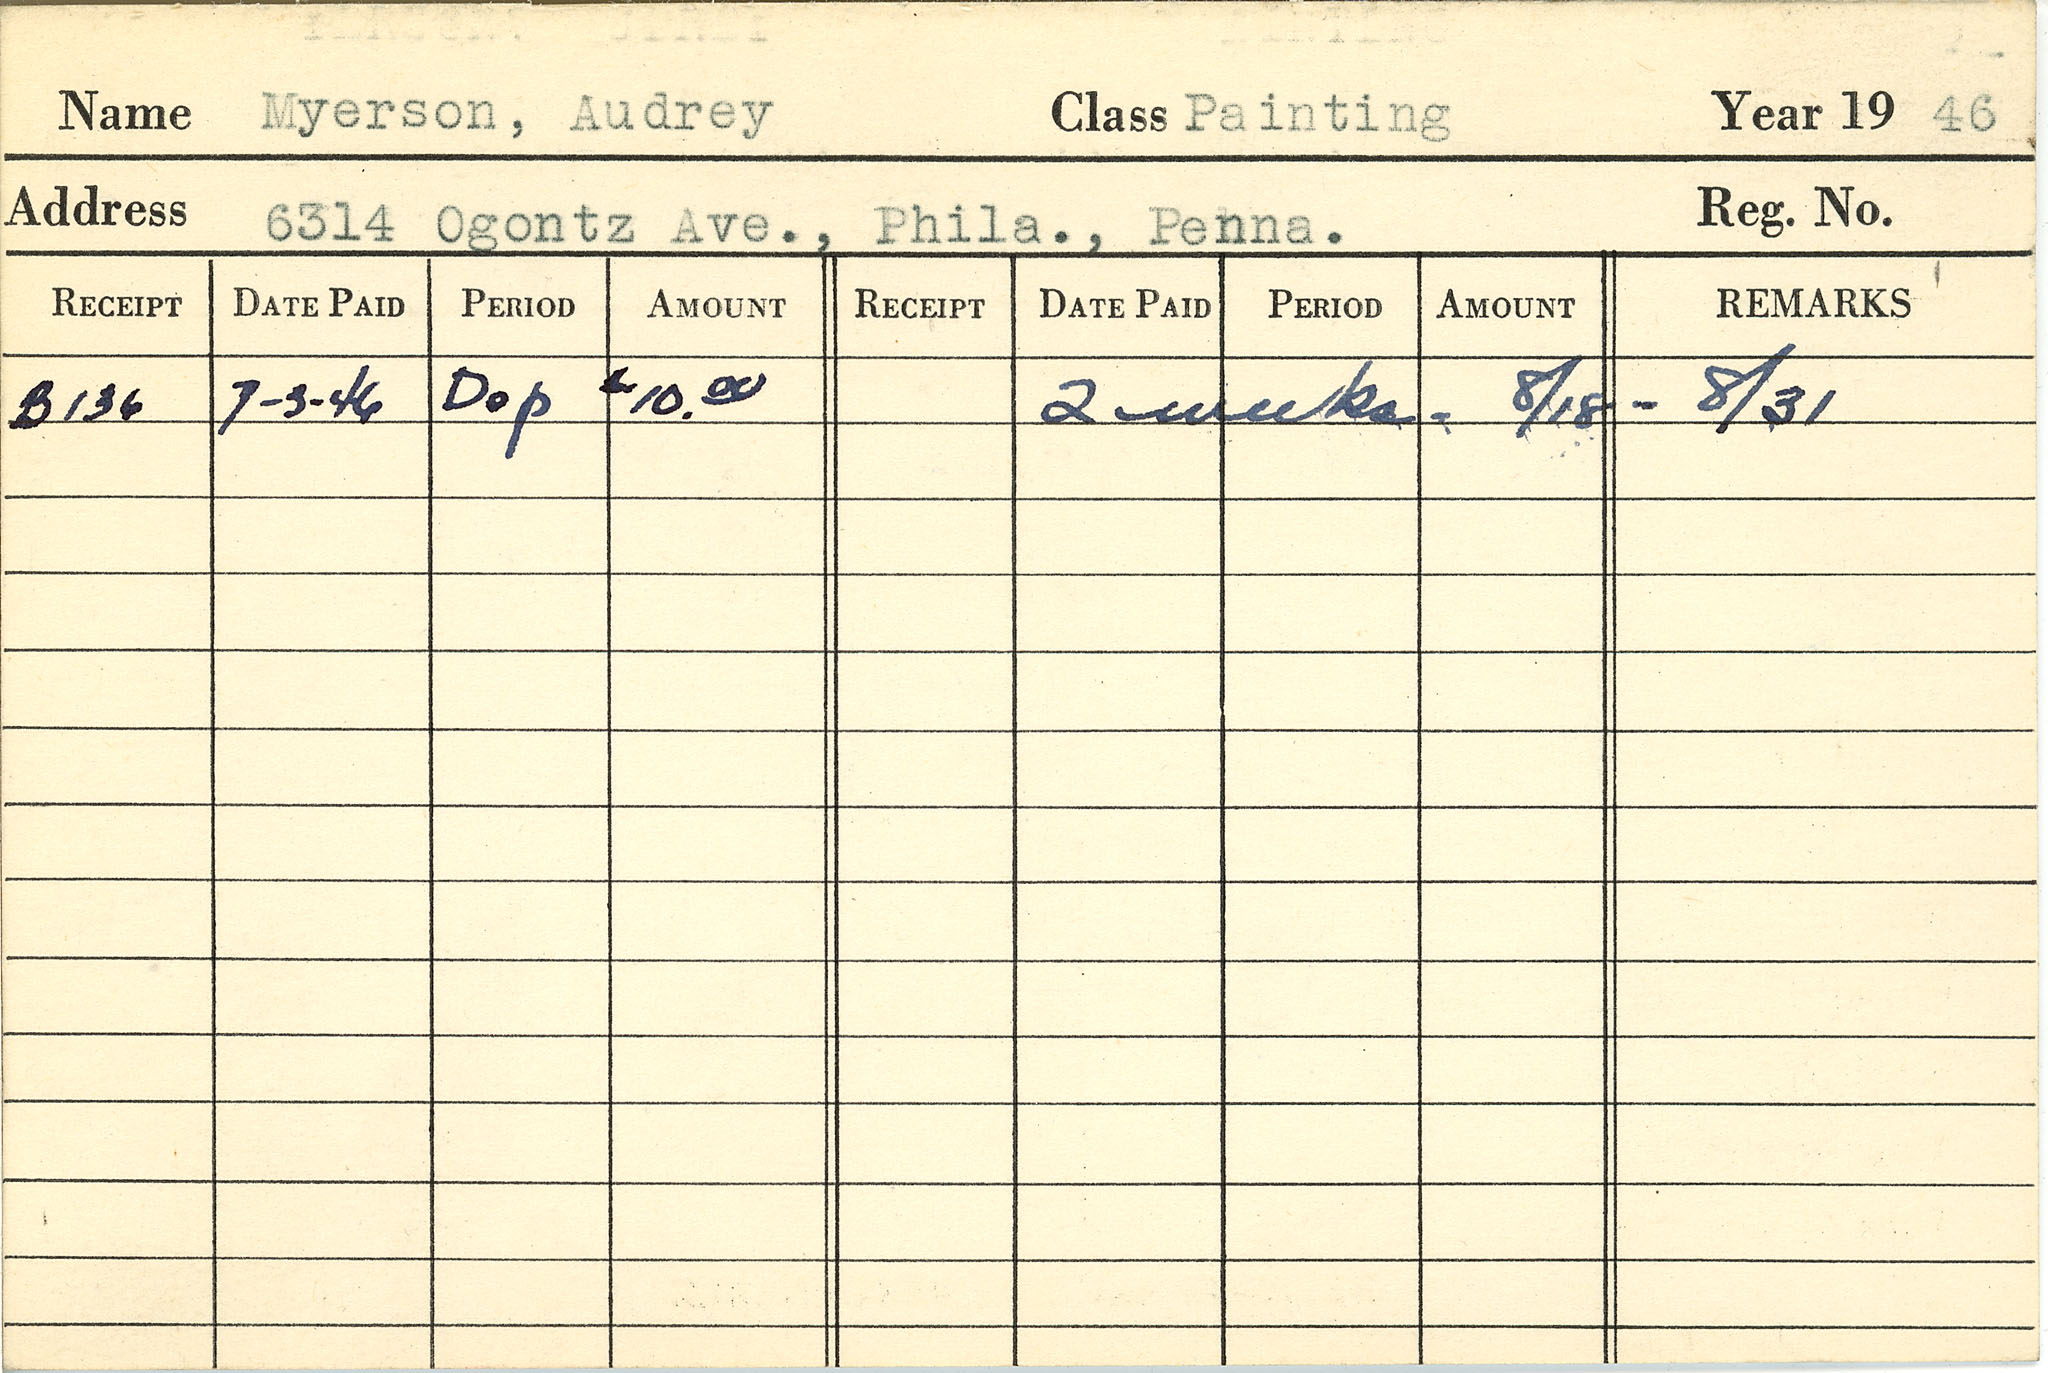 Name Myerson, Audrey Class Painting Year 19 46
Address 6314 Ogontz Ave., Phila., Penna. Reg. No.
RECEIPT DATE PAID PERIOD AMOUNT RECEIPT DATE PAID PERIOD AMOUNT REMARKS
B136 7-3-46 Dep $10.00 2 weeks - 8/18 - 8/31